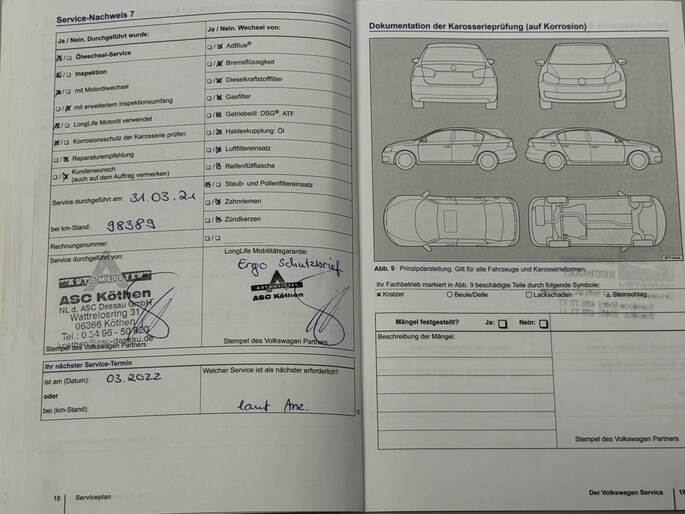 Service-Nachweis 7
Ja / Nein. Durchgeführt wurde:
Ölwechsel-Service
Inspektion
mit Motorölwechsel
mit erweitertem Inspektionsumfang
LongLife Motoröl verwendet
Korrosionsschutz der Karosserie prüfen
Reparaturempfehlung
Kundenwunsch
(auch auf dem Auftrag vermerken)
Service durchgeführt am: 31.03.21
bei km-Stand: 98389
Rechnungsnummer:
Service durchgeführt von:
AUTOMEISTER
ASC Köthen
NL d. ASC Dessau GmbH
Wattrelosring 31
06366 Köthen
Tel.: 0 34 96 - 50
koethen@asc-dessau.de
Stempel des Volkswagen Partners
Ja / Nein. Wechsel von:
AdBlue®
Bremsflüssigkeit
Dieselkraftstofffilter
Gasfilter
Getriebeöl: DSG®, ATF
Haldexkupplung: Öl
Luftfiltereinsatz
Reifenfüllflasche
Staub- und Pollenfiltereinsatz
Zahnriemen
Zündkerzen
LongLife Mobilitätsgarantie:
Ergo Schutzbrief
AUTOMEISTER
ASC Köthen
Stempel des Volkswagen Partners
Ihr nächster Service-Termin
ist am (Datum): 03.2022
oder
bei (km-Stand):
Welcher Service ist als nächster erforderlich?
laut Anz.
18 Serviceplan
Dokumentation der Karosserieprüfung (auf Korrosion)
Abb. 9 Prinzipdarstellung. Gilt für alle Fahrzeuge und Karosserieformen.
Ihr Fachbetrieb markiert in Abb. 9 beschädigte Teile durch folgende Symbole:
× Kratzer ○ Beule/Delle □ Lackschaden △ Steinschlag
Mängel festgestellt? Ja: Nein:
Beschreibung der Mängel:
Stempel des Volkswagen Partners
Der Volkswagen Service 19